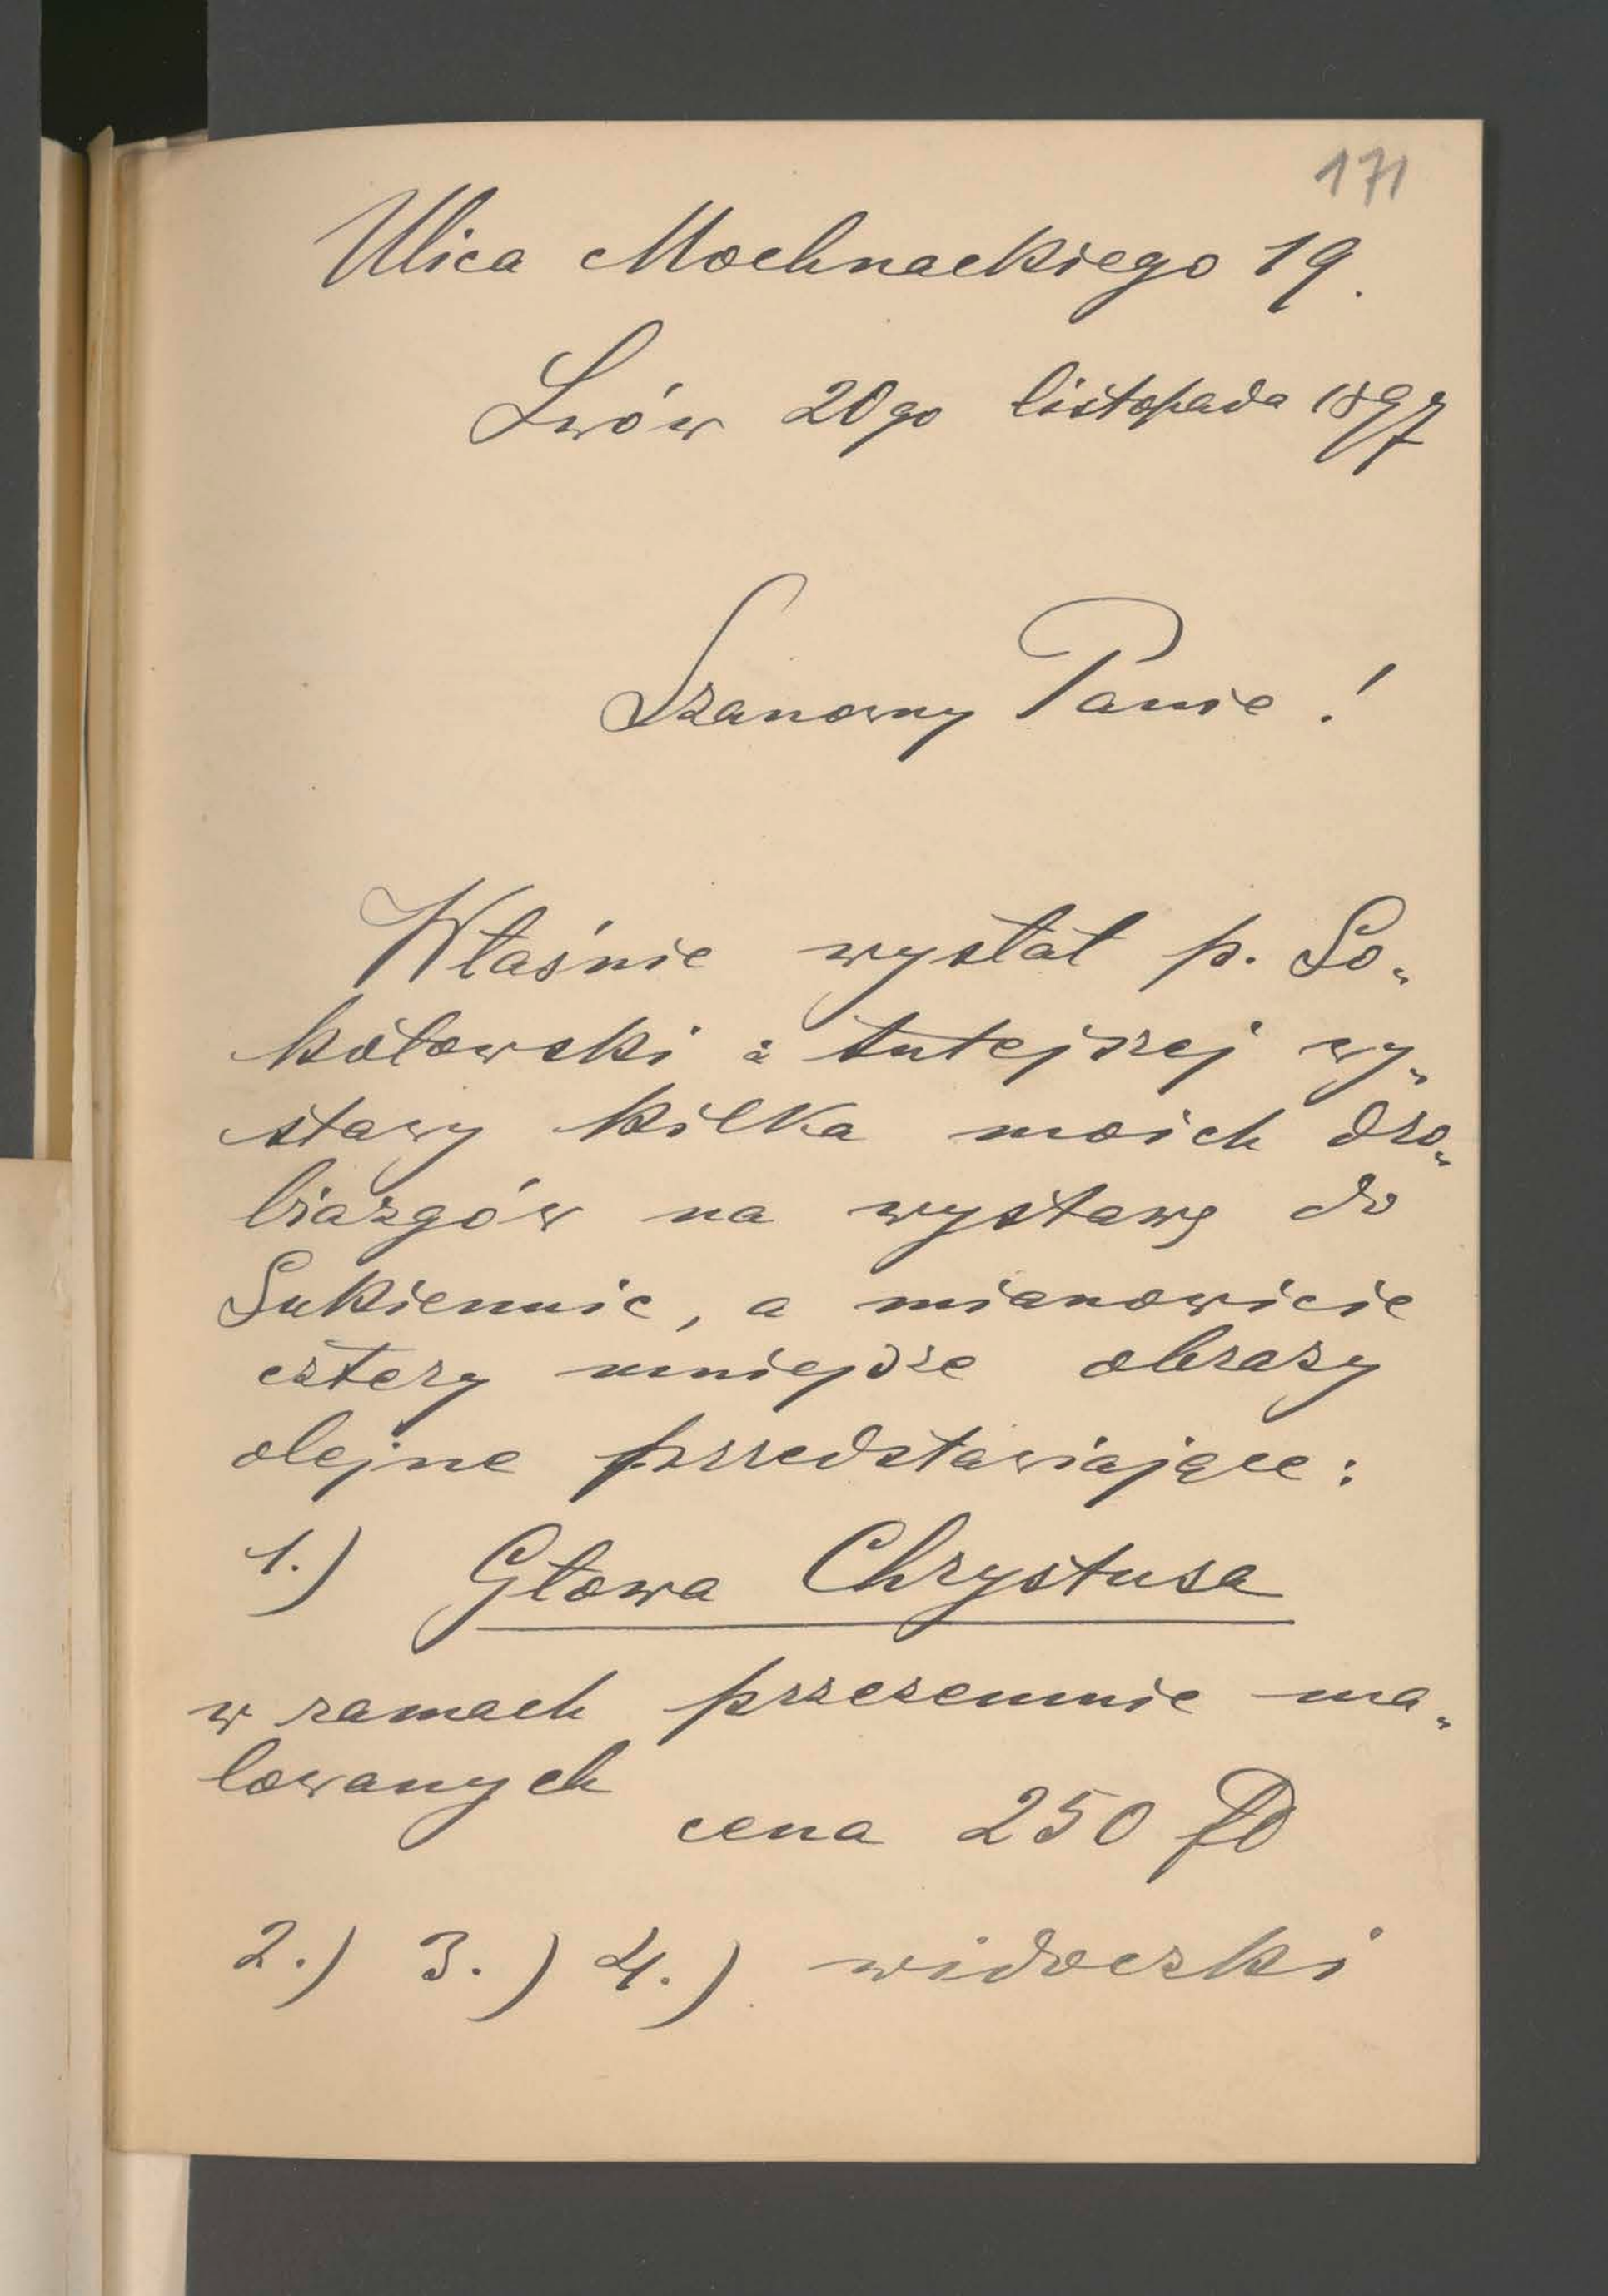 171
Ulica Mochnackiego 19.
Lwów 20go listopada 1897
Szanowny Panie!
Właśnie wysłał p. So„
kołowski z tutejszej wy„
stawy kilka moich dro„
biazgów na wystawę do
Sukiennic, a mianowicie
cztery mniejsze obrazy
olejne przedstawiające:
1.) Głowa Chrystusa
w ramach przezemnie ma„
lowanych
cena 250
2.) 3.) 4.) widoczki